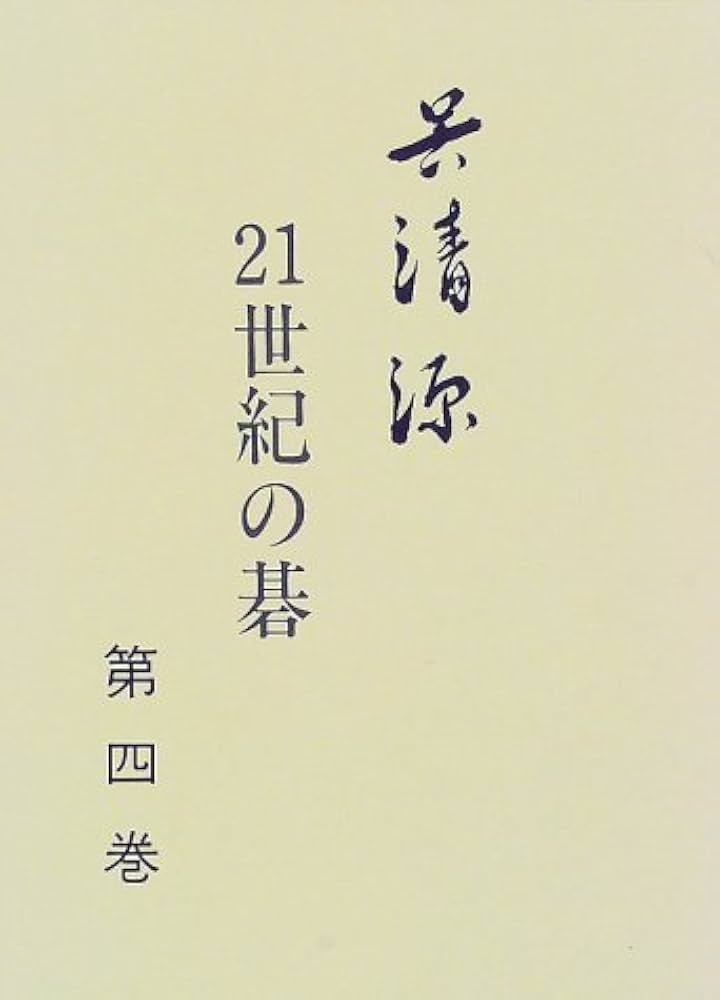 呉清源
21世紀の碁
第四巻